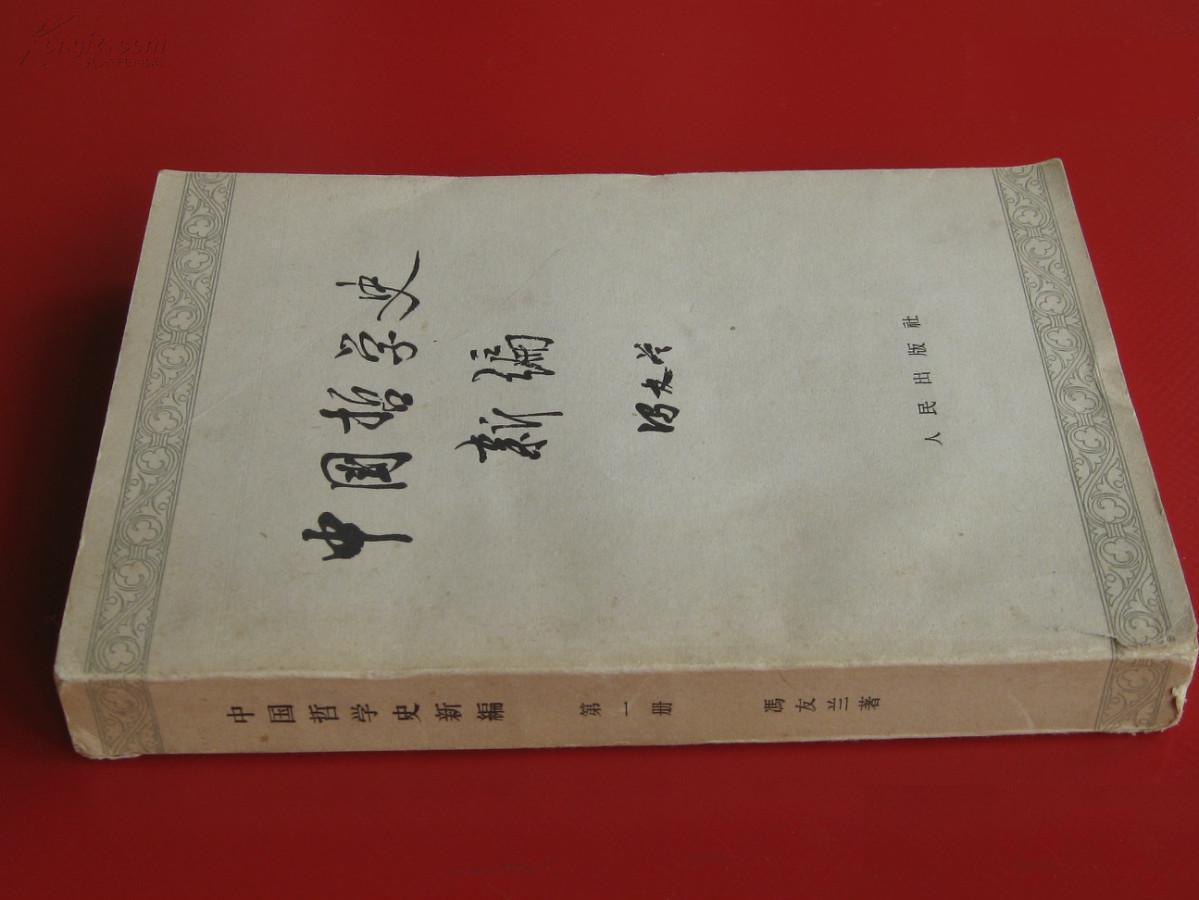 中国哲学史
新编
冯友兰
人民出版社
中国哲学史新編 第一册 馮友兰著